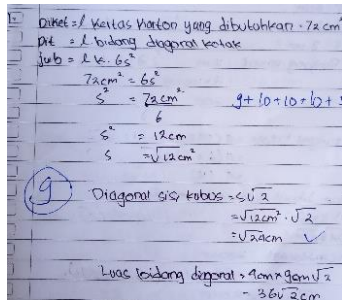 Diket = l kertas karton yang dibutuhkan = 72 cm²
Dit = l bidang diagonal kotak
Jwb = l k. 6s²
72cm² = 6s²
s² = 72cm²
6
9+10+10+10+
s² = 12cm
s = √12cm²
9
Diagonal sisi kubus = s√2
= √12cm² · √2
= √24cm ✓
Luas bidang diagonal = 4cm × 9cm√2
= 36√2cm